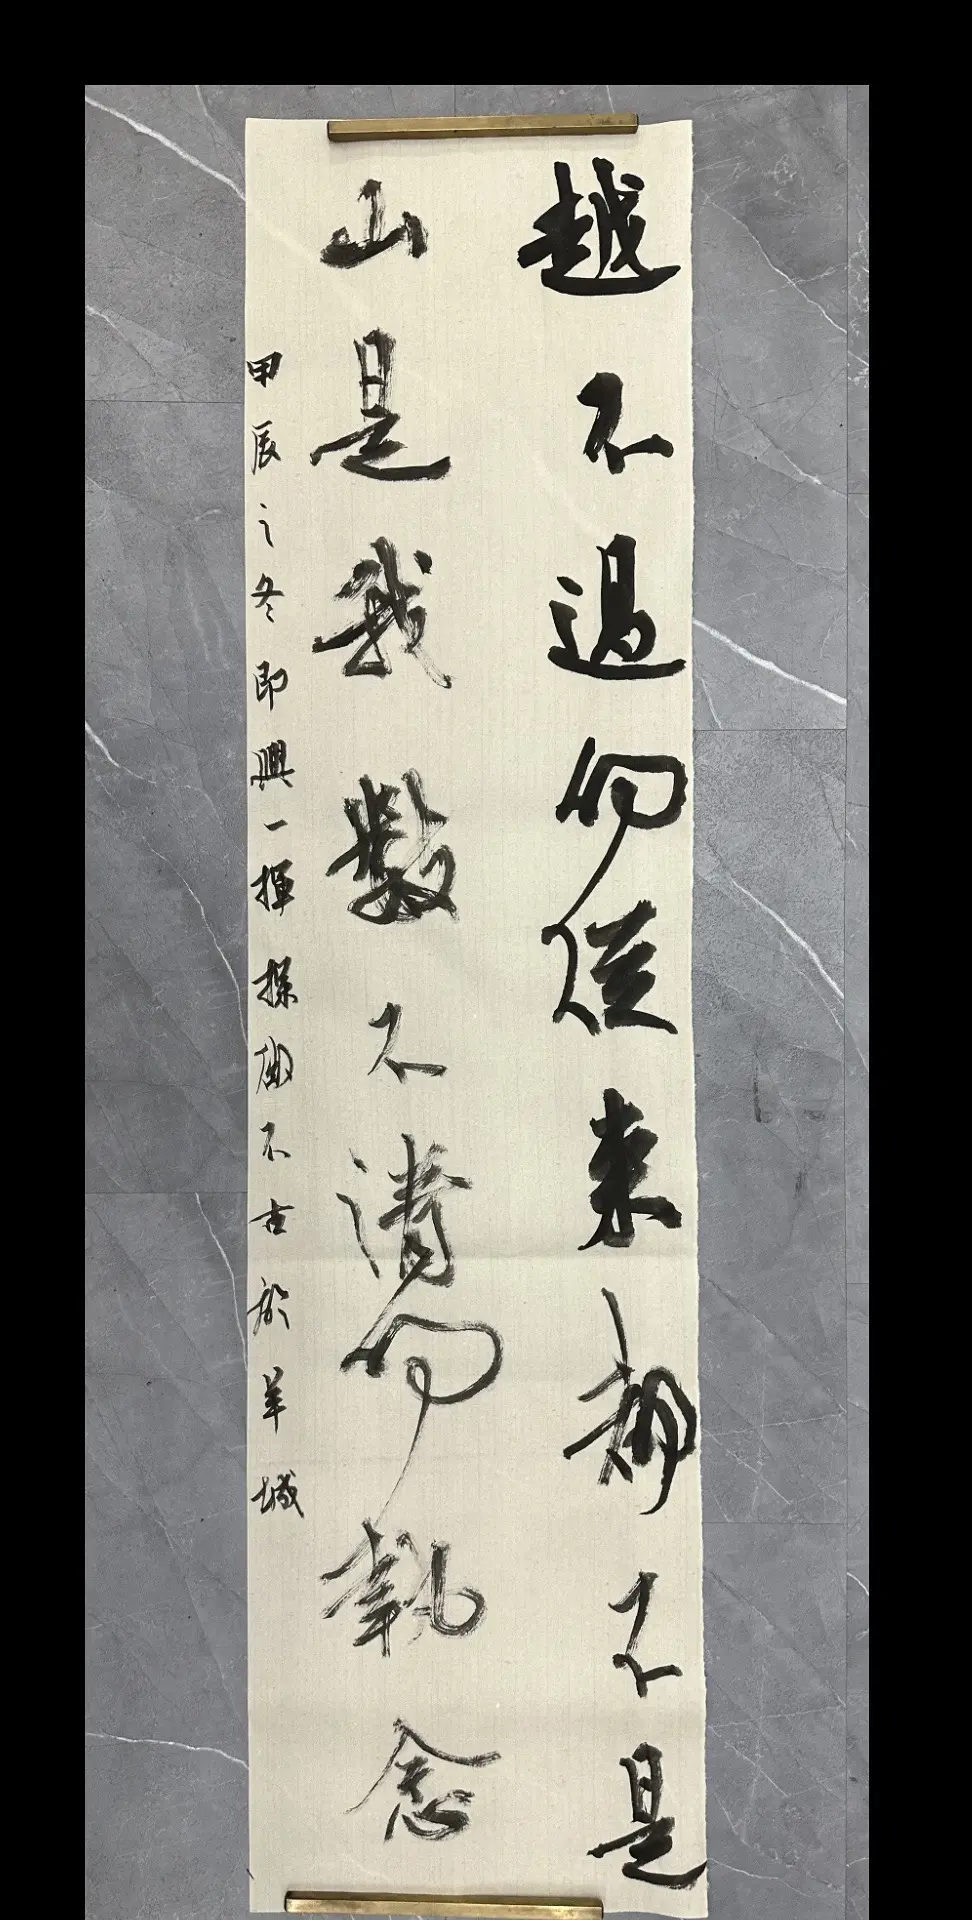 越不過的從来都不是
山是我數不清的執念
甲辰之冬即興一揮操不古於羊城